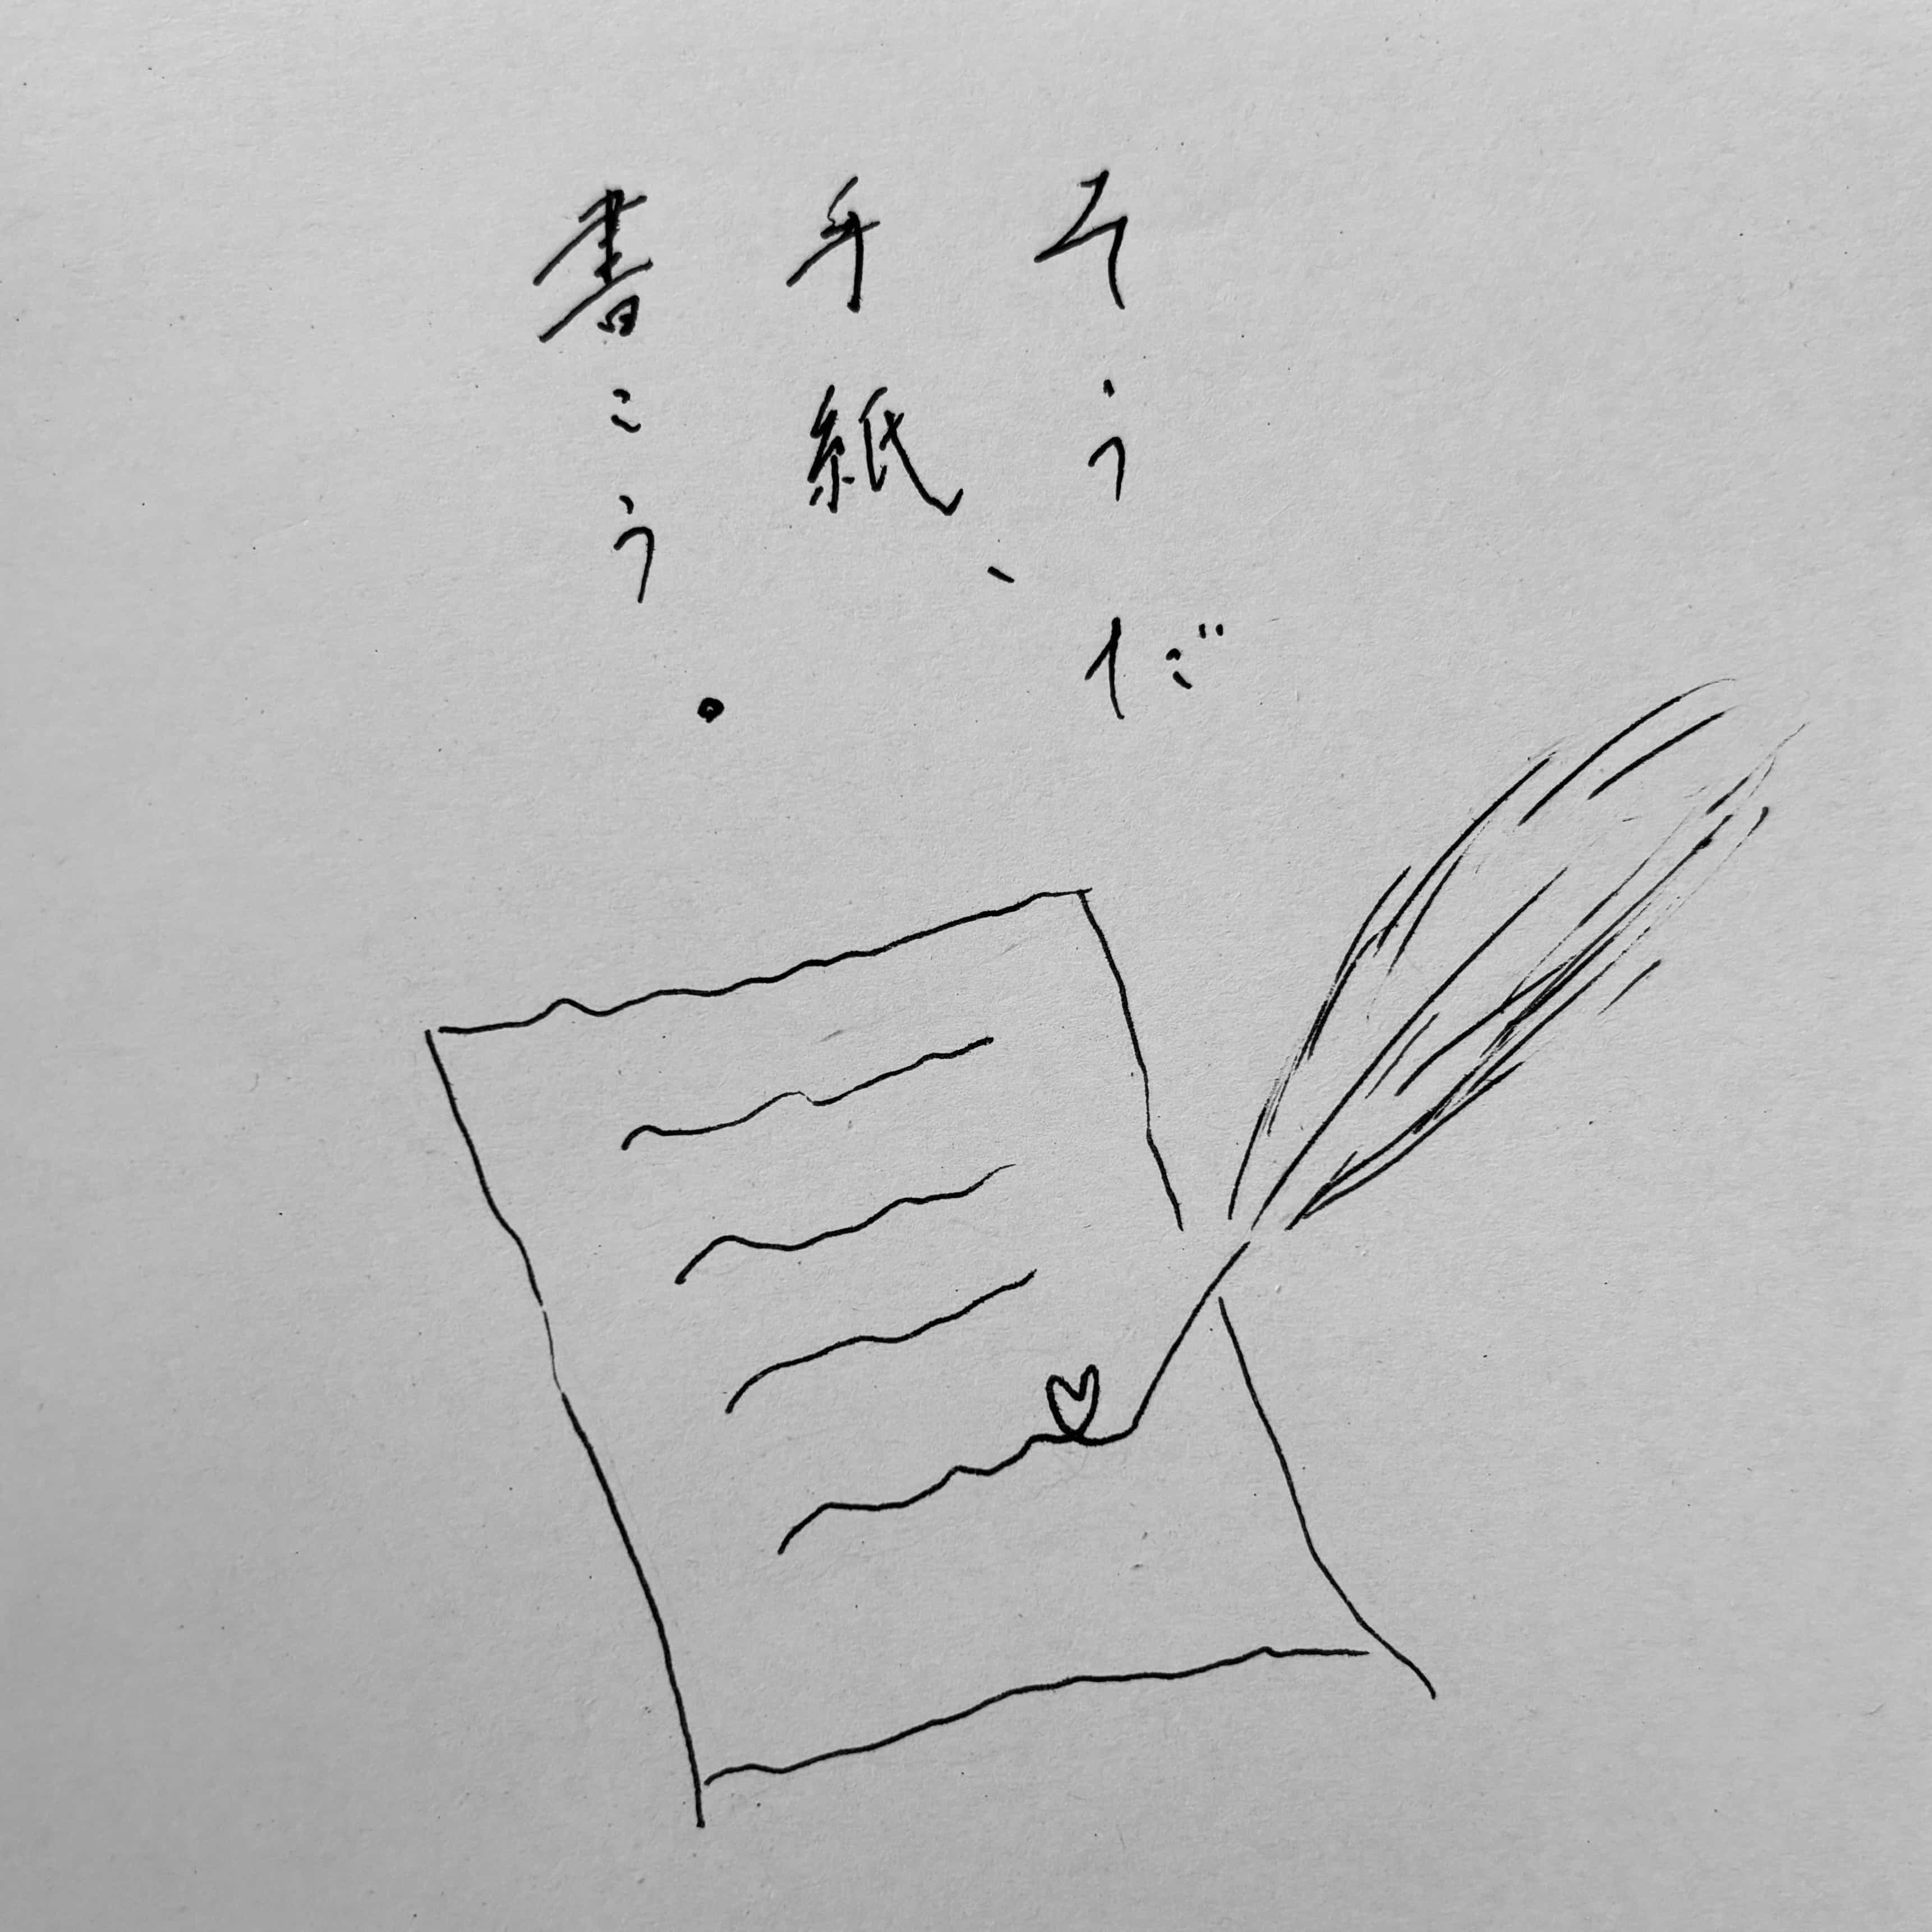 そうだ
手紙、
書こう。